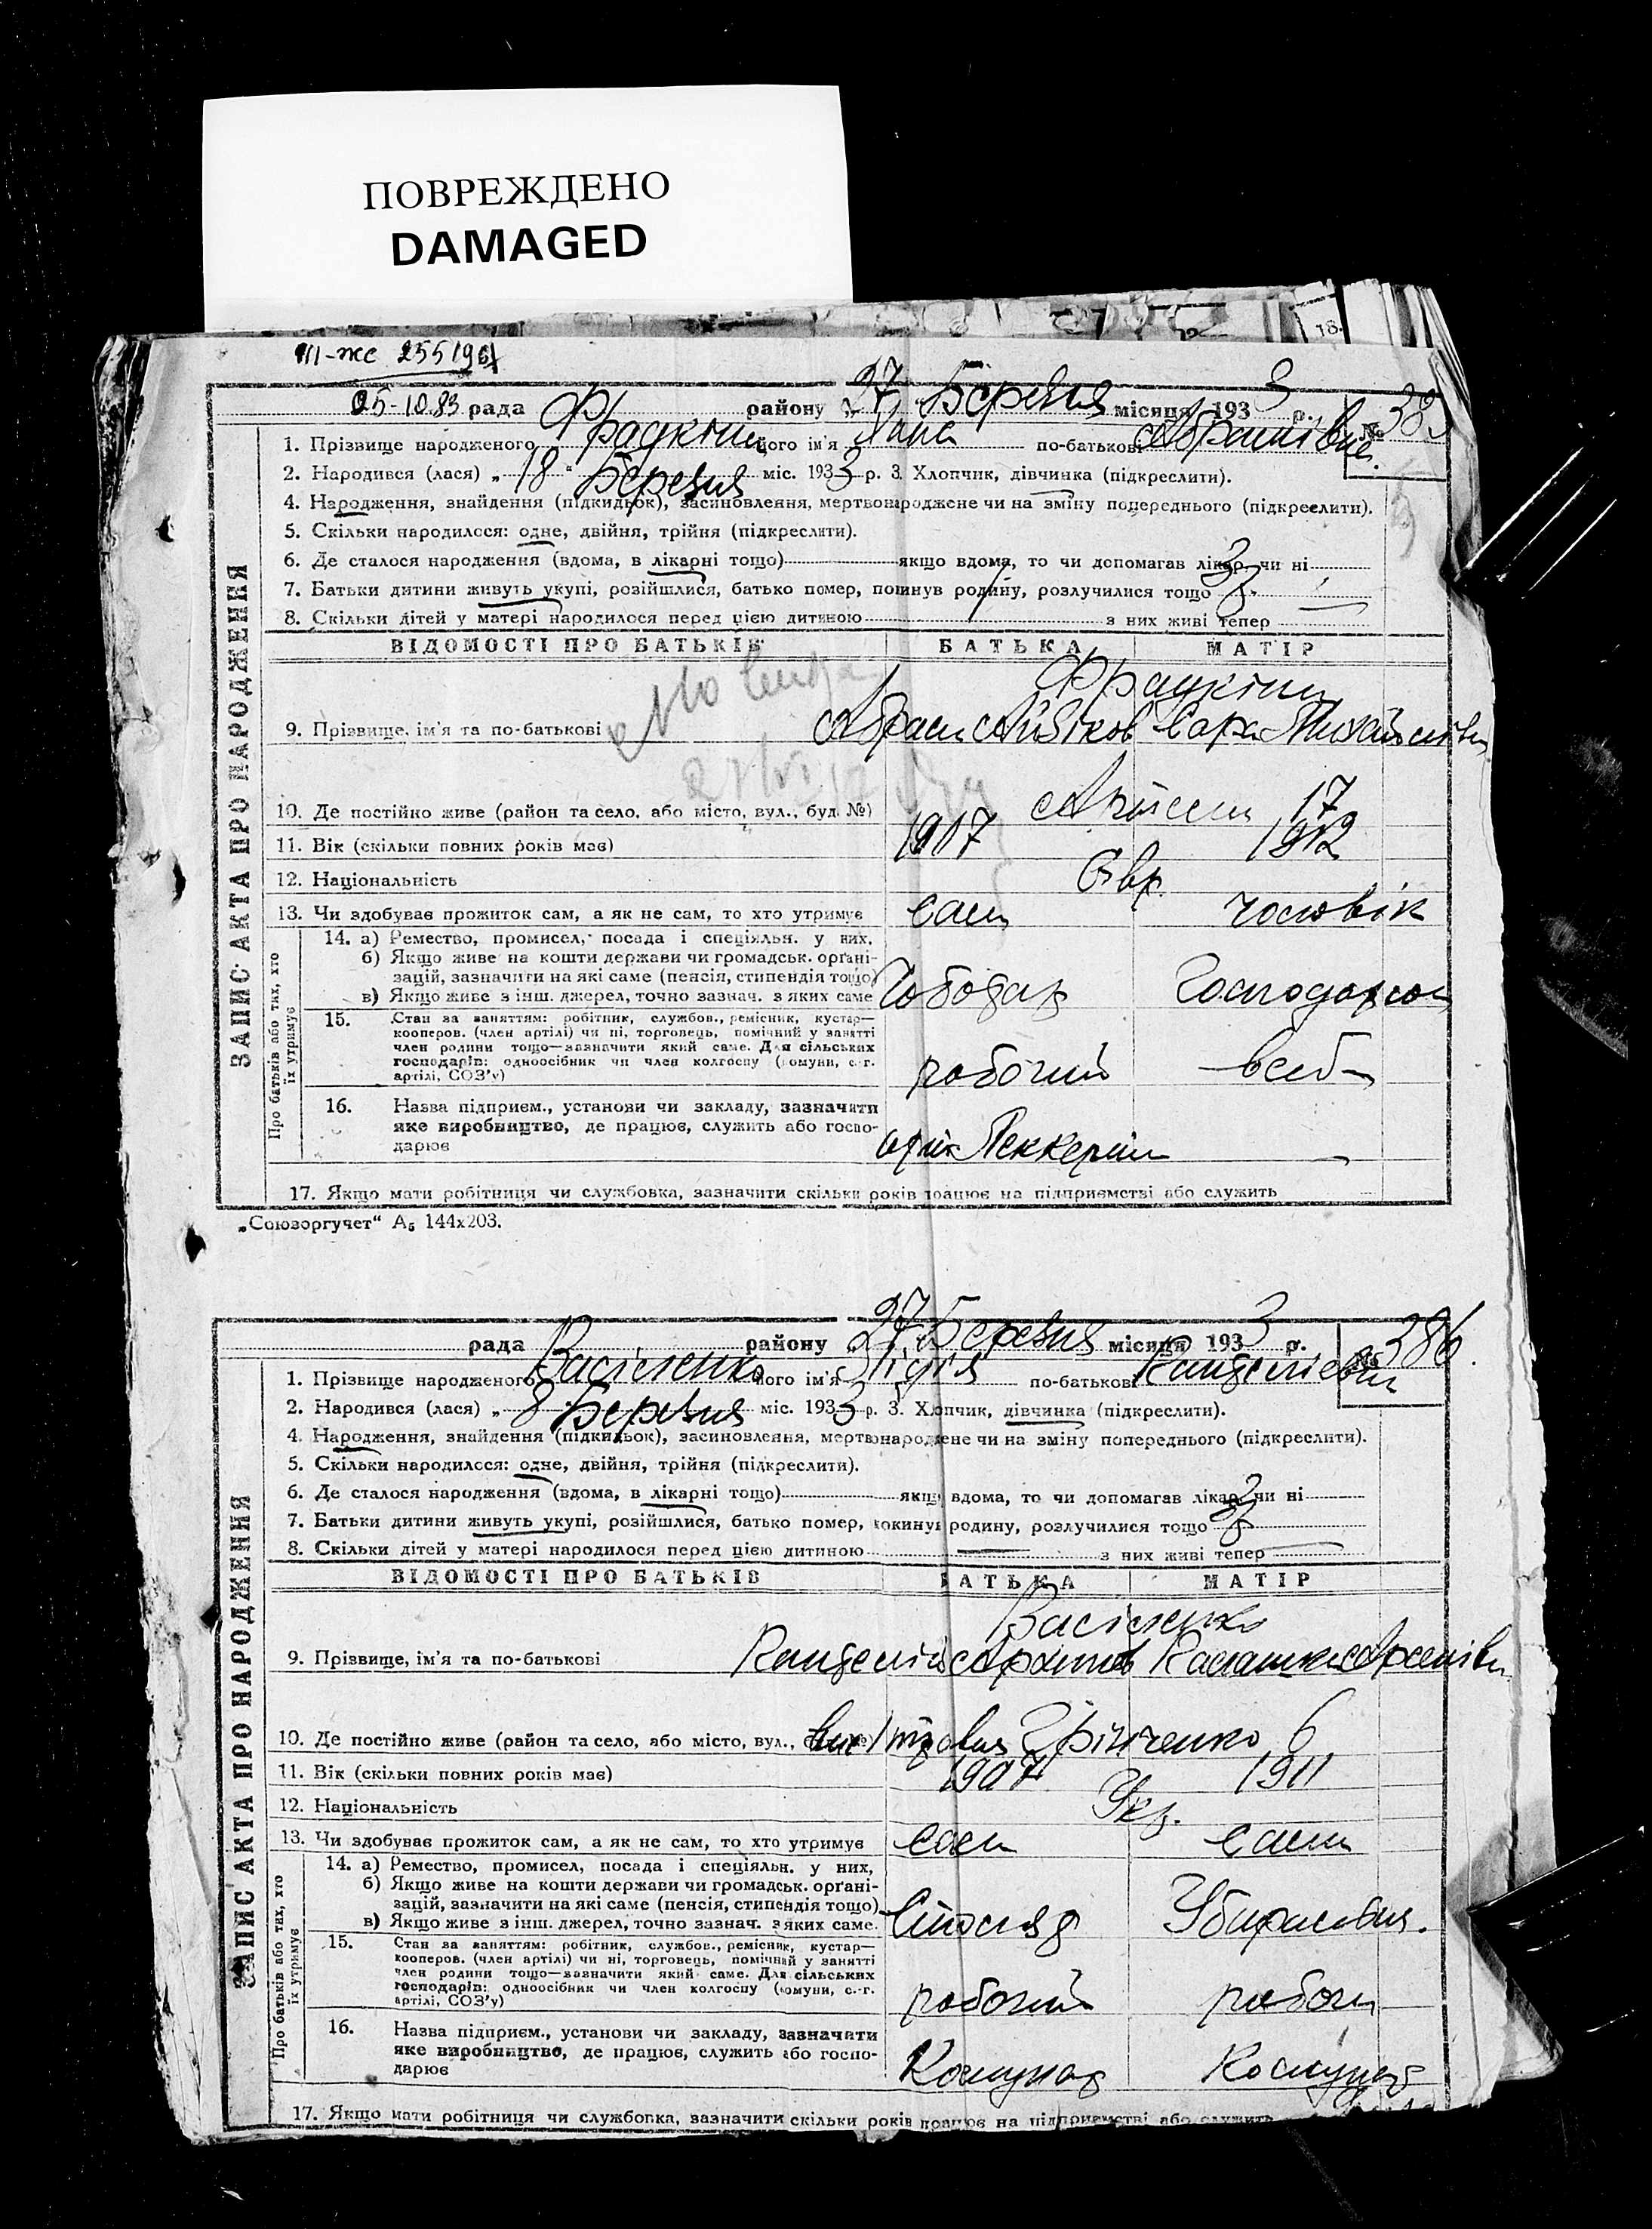 ПОВРЕЖДЕНО
DAMAGED
18.
05-10.83 рада району 27 Березня місяця 1933 р.
№ 385
1. Прізвище народженого Фрадкіна його ім'я по-батькові Абрамівна
2. Народився (лася) „18" Березня міс. 1933 р. 3. Хлопчик, дівчинка (підкреслити).
4. Народження, знайдення (підкидьок), засиновлення, мертвонароджене чи на зміну попереднього (підкреслити).
5. Скільки народилося: одне, двійня, трійня (підкреслити).
6. Де сталося народження (вдома, в лікарні тощо) якщо вдома, то чи допомагав лікар, чи ні
7. Батьки дитини живуть укупі, розійшлися, батько помер, покинув родину, розлучилися тощо
8. Скільки дітей у матері народилося перед цією дитиною з них живі тепер
ЗАПИС АКТА ПРО НАРОДЖЕННЯ
ВІДОМОСТІ ПРО БАТЬКІВ БАТЬКА МАТІР
Фрадкіни
9. Прізвище, ім'я та по-батькові Абрам Айзіков Сара Михайлівна
10. Де постійно живе (район та село, або місто, вул., буд. №) 17
11. Вік (скільки повних років має) 1907 1912
12. Національність Євр.
13. Чи здобуває прожиток сам, а як не сам, то хто утримує сам чоловік
Про батьків або тих, хто їх утримує
14. а) Ремество, промисел, посада і спеціяльн. у них.
б) Якщо живе на кошти держави чи громадськ. органі-
зацій, зазначити на які саме (пенсія, стипендія тощо)
в) Якщо живе з інш. джерел, точно зазнач. з яких саме
15. Стан за заняттям: робітник, службов., ремісник, кустар—
кооперов. (член артілі) чи ні, торговець, помічний у занятті
член родини тощо—зазначити який саме. Для сільських
господарів: одноосібник чи член колгоспу (комуни, с.-г.
артілі, СОЗ'у) робочий
16. Назва підприєм., установи чи закладу, зазначити
яке виробництво, де працює, служить або госпо-
дарює
17. Якщо мати робітниця чи службовка, зазначити скільки років працює на підприємстві або служить
„Союзоргучет" А₅ 144х203.
рада району 27 Березня місяця 1933 р.
№ 386
1. Прізвище народженого Васіленко його ім'я Лідія по-батькові
2. Народився (лася) „8 Березня міс. 1933 р. 3. Хлопчик, дівчинка (підкреслити).
4. Народження, знайдення (підкидьок), засиновлення, мертвонароджене чи на зміну попереднього (підкреслити).
5. Скільки народилося: одне, двійня, трійня (підкреслити).
6. Де сталося народження (вдома, в лікарні тощо) якщо вдома, то чи допомагав лікар, чи ні
7. Батьки дитини живуть укупі, розійшлися, батько помер, покинув родину, розлучилися тощо
8. Скільки дітей у матері народилося перед цією дитиною — з них живі тепер
ЗАПИС АКТА ПРО НАРОДЖЕННЯ
ВІДОМОСТІ ПРО БАТЬКІВ БАТЬКА МАТІР
Васіленко
9. Прізвище, ім'я та по-батькові
10. Де постійно живе (район та село, або місто, вул., буд. №) Грінченко 6
11. Вік (скільки повних років має) 1907 1911
12. Національність Укр.
13. Чи здобуває прожиток сам, а як не сам, то хто утримує сам сама
Про батьків або тих, хто їх утримує
14. а) Ремество, промисел, посада і спеціяльн. у них,
б) Якщо живе на кошти держави чи громадськ. органі-
зацій, зазначити на які саме (пенсія, стипендія тощо)
в) Якщо живе з інш. джерел, точно зазнач. з яких саме.
15. Стан за заняттям: робітник, службов., ремісник, кустар—
кооперов. (член артілі) чи ні, торговець, помічний у занятті
член родини тощо—зазначити який саме. Для сільських
господарів: одноосібник чи член колгоспу (комуни, с.-г.
артілі, СОЗ'у) робочий
16. Назва підприєм., установи чи закладу, зазначити
яке виробництво, де працює, служить або госпо-
дарює
17. Якщо мати робітниця чи службовка, зазначити скільки років працює на підприємстві або служить